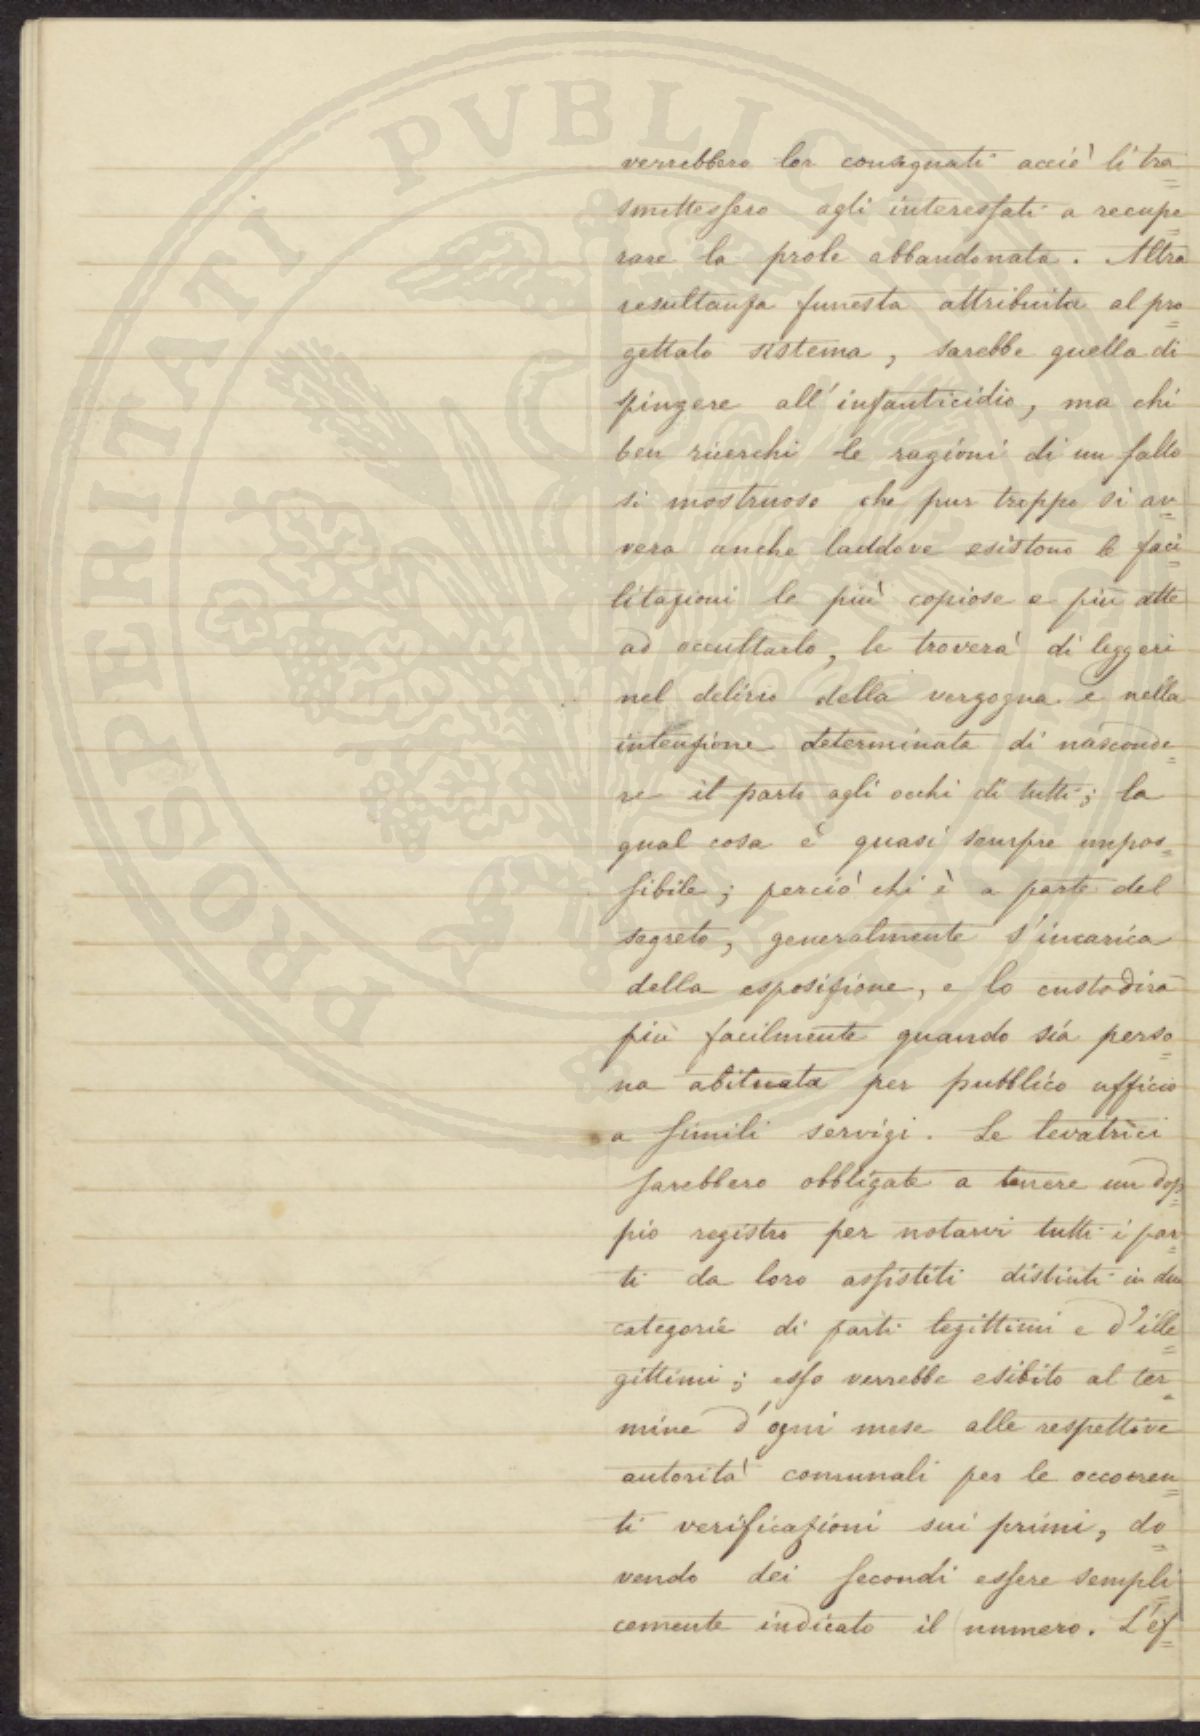 PROSPERITATI PVBLICAE AVGENDAE
verrebbero lor consegnati acciò li tra=
smettessero agli interessati a recupe=
rare la prole abbandonata. Altra
resultanza funesta attribuita al pro=
gettato sistema, sarebbe quella di
spingere all'infanticidio, ma chi
ben ricerchi le ragioni di un fallo
sì mostruoso che pur troppo si av=
vera anche laddove esistono le faci=
litazioni le più copiose e più atte
ad occultarlo, le troverà di leggeri
nel delirio della vergogna e nella
intenzione determinata di nasconde=
re il parto agli occhi di tutti; la
qual cosa è quasi sempre impos=
sibile; perciò chi è a parte del
segreto, generalmente s'incarica
della esposizione, e lo custodirà
più facilmente quando sia perso=
na abituata per pubblico ufficio
a simili servigi. Le levatrici
sarebbero obbligate a tenere un dop=
pio registro per notarvi tutti i par=
ti da loro assistiti distinti in due
categorie di parti legittimi e d'ille=
gittimi; esso verrebbe esibito al ter=
mine d'ogni mese alle respettive
autorità comunali per le occorren=
ti verificazioni sui primi, do=
vendo dei secondi essere sempli=
cemente indicato il numero. L'es=